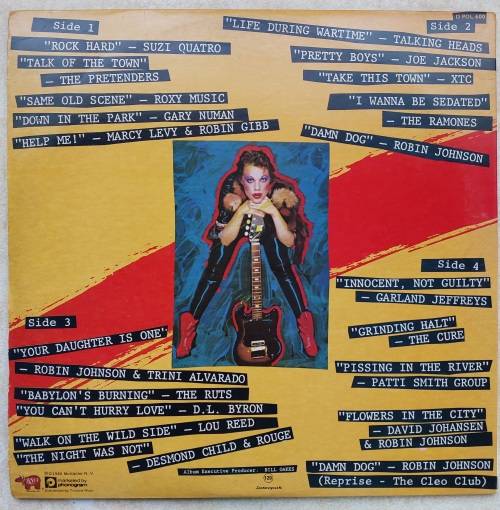 D POL 600
Side 1
"ROCK HARD" — SUZI QUATRO
"TALK OF THE TOWN"
— THE PRETENDERS
"SAME OLD SCENE" — ROXY MUSIC
"DOWN IN THE PARK" — GARY NUMAN
"HELP ME!" — MARCY LEVY & ROBIN GIBB
Side 2
"LIFE DURING WARTIME" — TALKING HEADS
"PRETTY BOYS" — JOE JACKSON
"TAKE THIS TOWN" — XTC
"I WANNA BE SEDATED"
— THE RAMONES
"DAMN DOG" — ROBIN JOHNSON
Side 3
"YOUR DAUGHTER IS ONE"
— ROBIN JOHNSON & TRINI ALVARADO
"BABYLON'S BURNING" — THE RUTS
"YOU CAN'T HURRY LOVE" — D.L. BYRON
"WALK ON THE WILD SIDE" — LOU REED
"THE NIGHT WAS NOT"
— DESMOND CHILD & ROUGE
Side 4
"INNOCENT, NOT GUILTY"
— GARLAND JEFFREYS
"GRINDING HALT"
— THE CURE
"PISSING IN THE RIVER"
— PATTI SMITH GROUP
"FLOWERS IN THE CITY"
— DAVID JOHANSEN
& ROBIN JOHNSON
"DAMN DOG" — ROBIN JOHNSON
(Reprise - The Cleo Club)
Album Executive Producer: BILL OAKES
RSO
marketed by
phonogram